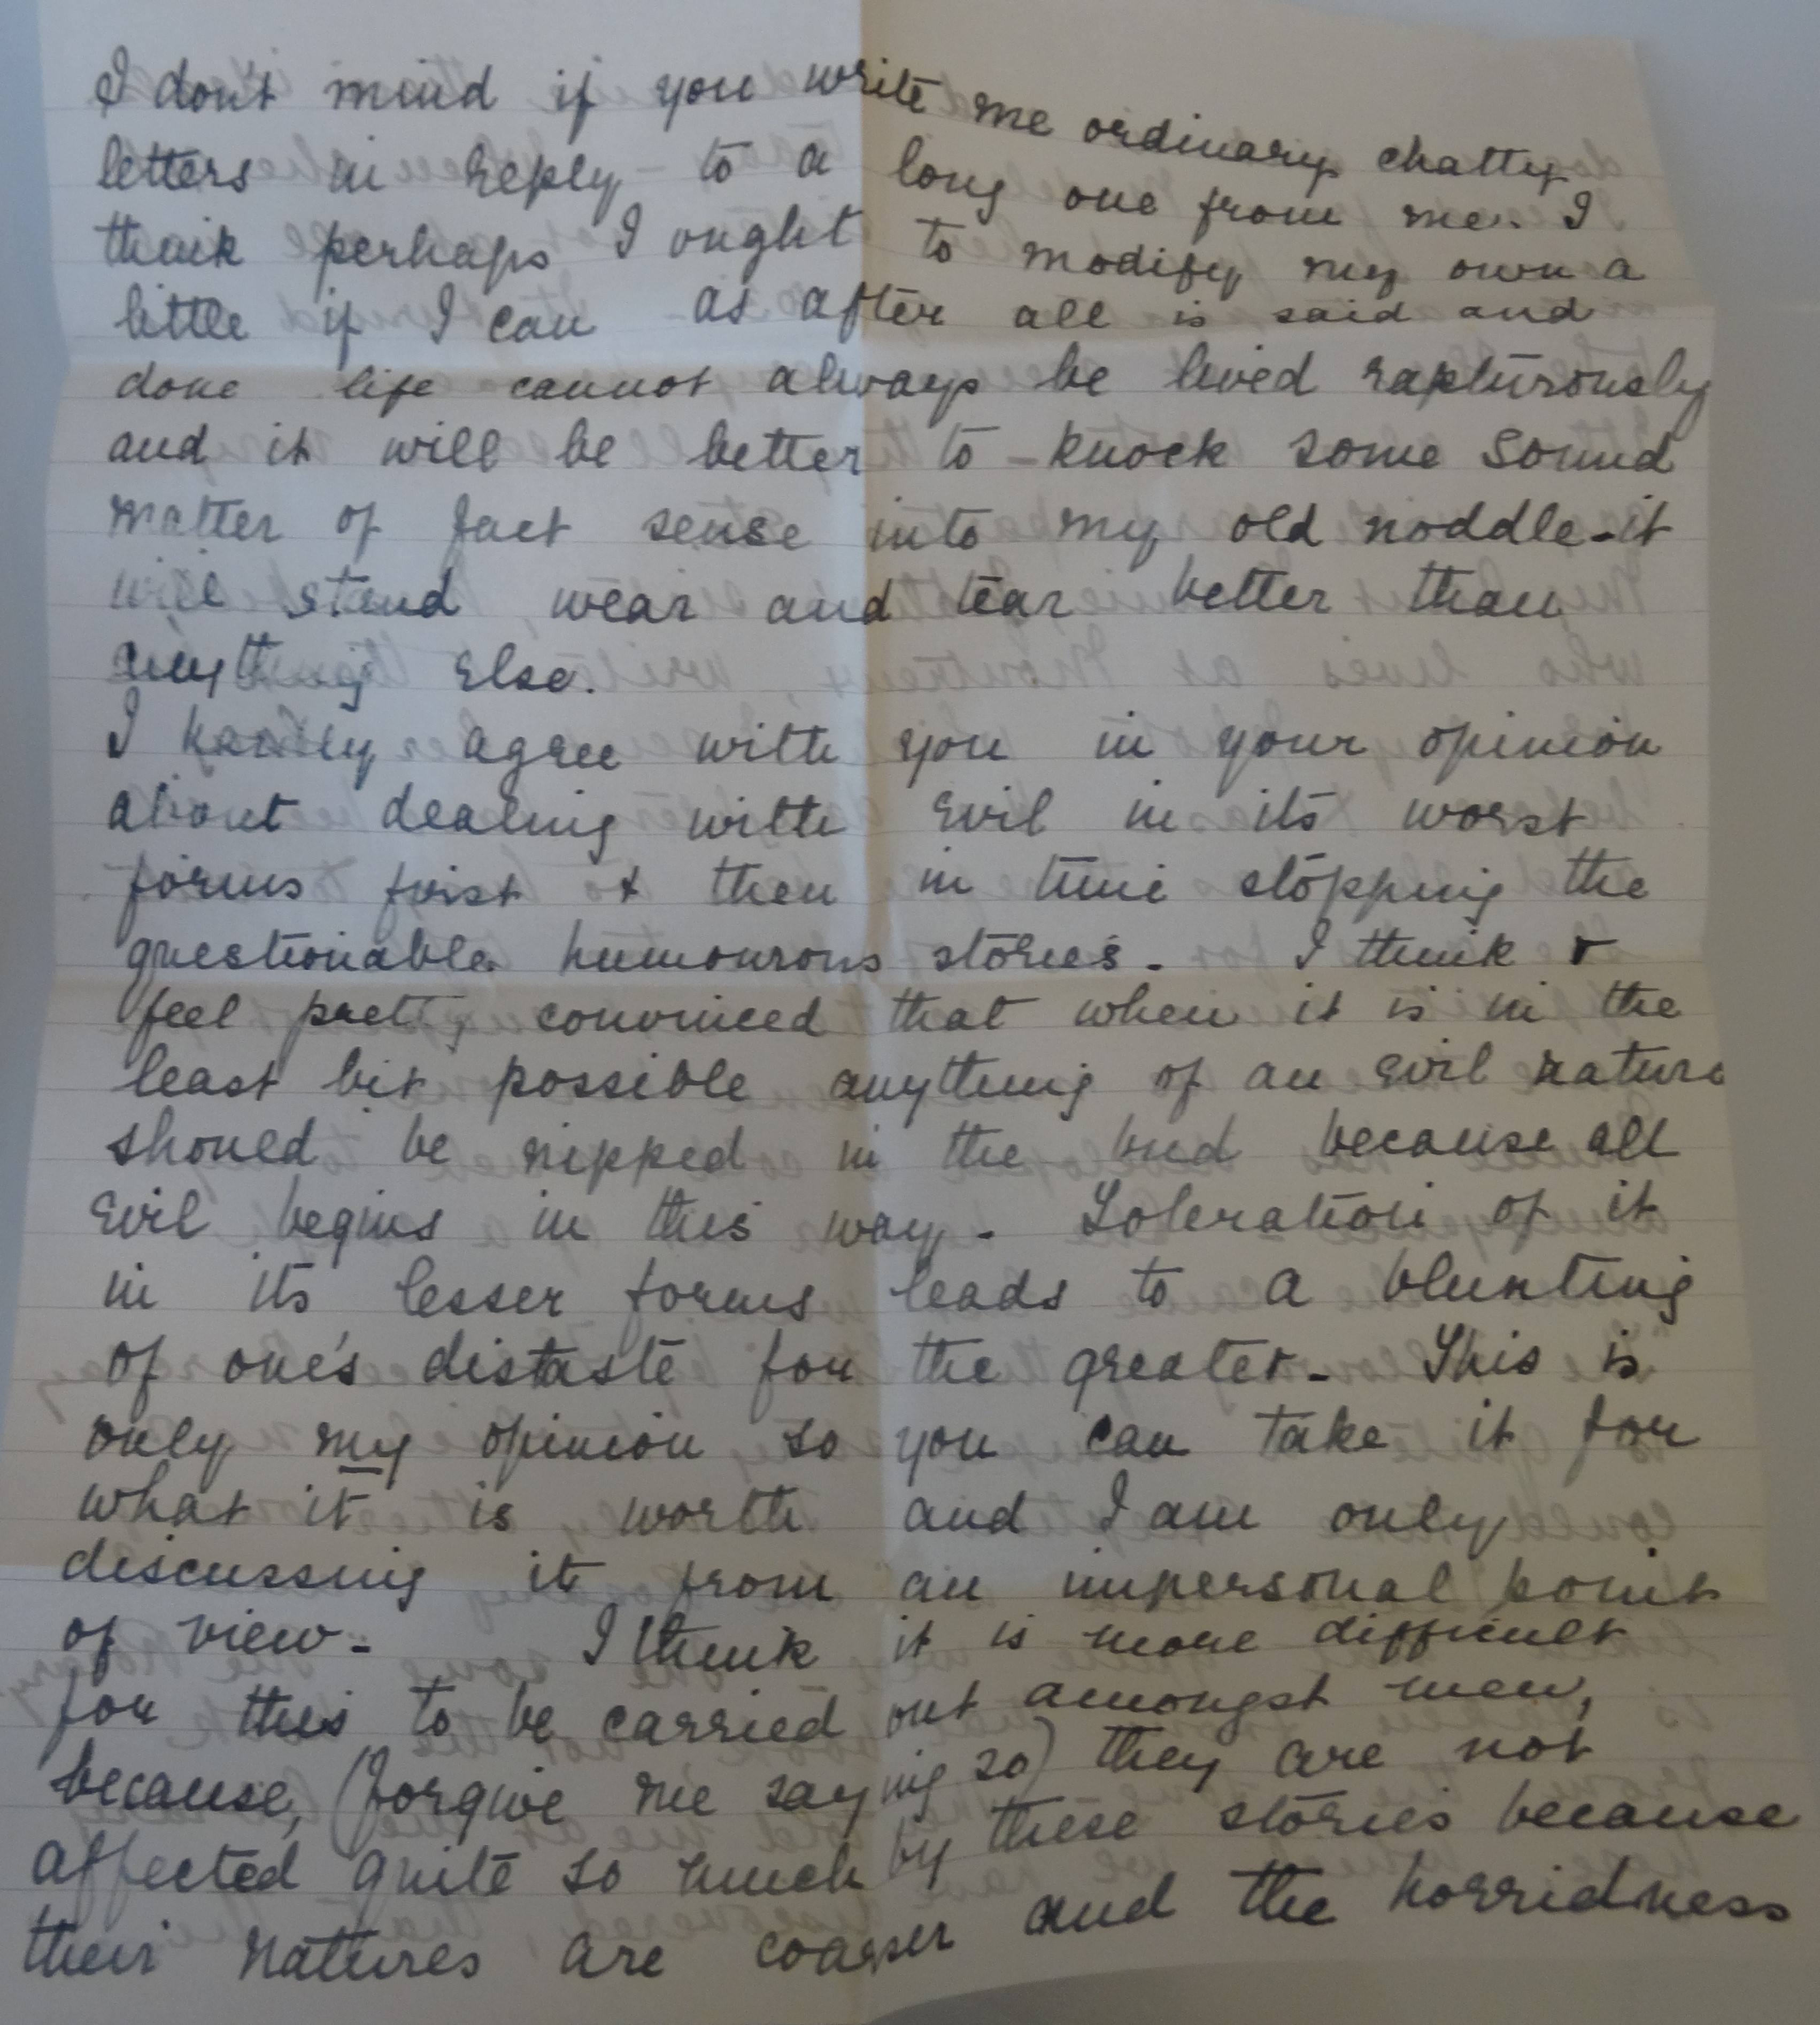 I don't mind if you write me ordinary chatty
letters in reply to a long one from me. I
think perhaps I ought to modify my own a
little if I can as after all is said and
done life cannot always be lived rapturously
and it will be better to - knock some sound
matter of fact sense into my old noddle - it
will stand wear and tear better than
anything else.
I hardly agree with you in your opinion
about dealing with evil in its worst
forms first & then in time stopping the
questionable humourous stories. I think &
feel pretty convinced that when it is in the
least bit possible anything of an evil nature
should be nipped in the bud because all
evil begins in this way. Toleration of it
in its lesser forms leads to a blunting
of one's distaste for the greater. This is
only my opinion so you can take it for
what it is worth and I am only
discussing it from an impersonal point
of view. I think it is more difficult
for this to be carried out amongst men,
because, (forgive me saying so) they are not
affected quite so much by these stories because
their natures are coarser and the horridness